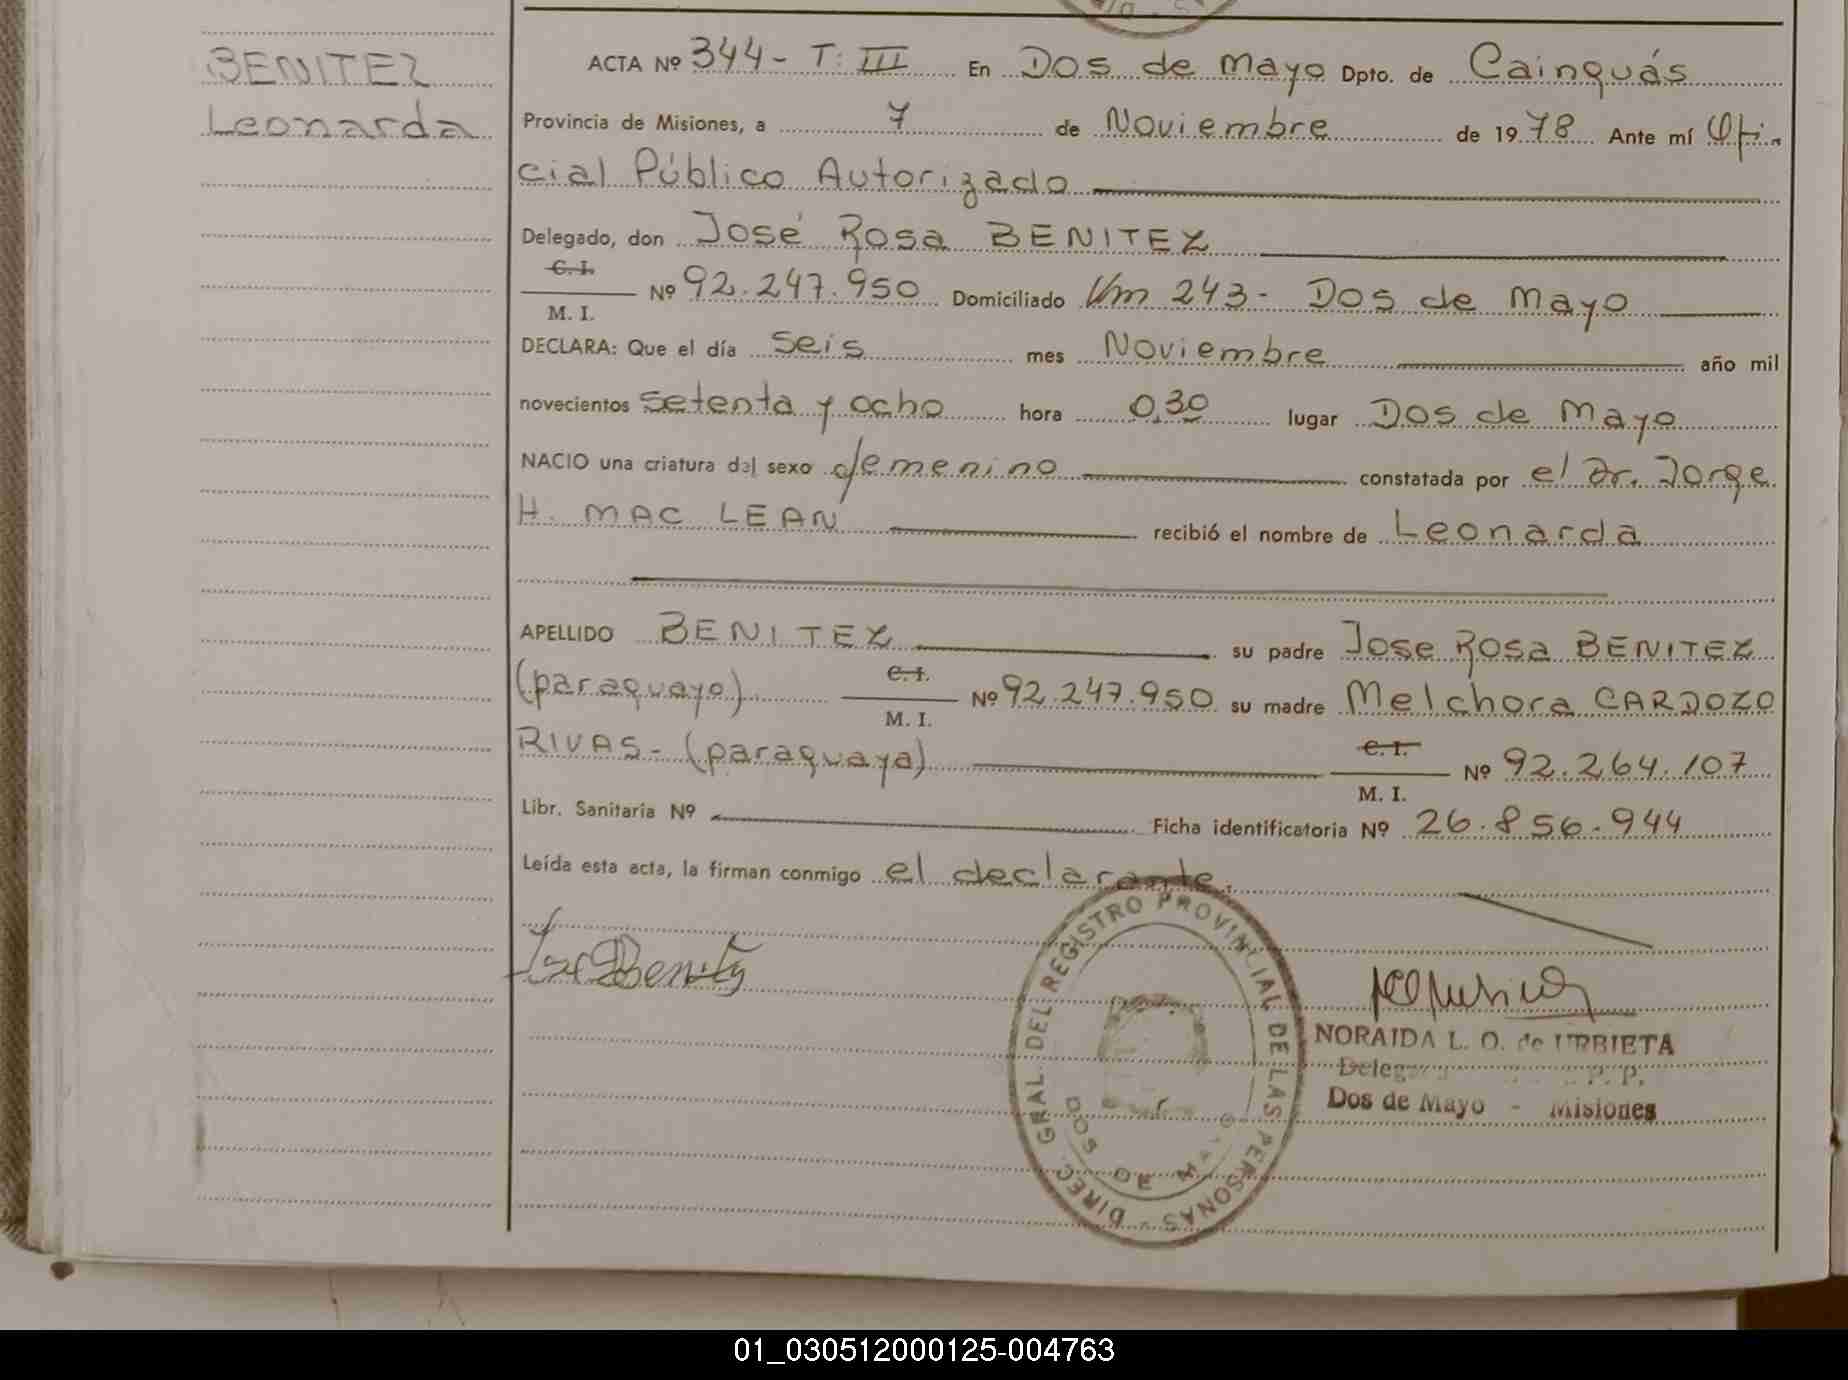 BENITEZ
Leonarda
ACTA Nº 344 - T: III En Dos de Mayo Dpto. de Cainguás
Provincia de Misiones, a 7 de Noviembre de 1978 Ante mí Ofi-
cial Público Autorizado
Delegado, don José Rosa BENITEZ
C. I.
M. I. Nº 92.247.950 Domiciliado Km 243 - Dos de Mayo
DECLARA: Que el día seis mes Noviembre año mil
novecientos setenta y ocho hora 0,30 lugar Dos de Mayo
NACIO una criatura del sexo femenino constatada por el Dr. Jorge
H. MAC LEAN recibió el nombre de Leonarda
APELLIDO BENITEZ su padre Jose Rosa BENITEZ
(paraguayo) C. I. M. I. Nº 92.247.950 su madre Melchora CARDOZO
RIVAS - (paraguaya) C. I. M. I. Nº 92.264.107
Libr. Sanitaria Nº Ficha identificatoria Nº 26.856.944
Leída esta acta, la firman conmigo el declarante.
DIREC. GRAL. DEL REGISTRO PROVINCIAL DE LAS PERSONAS
DOS DE MAYO
NORAIDA L. O. de URBIETA
P. P.
Dos de Mayo - Misiones
01_030512000125-004763